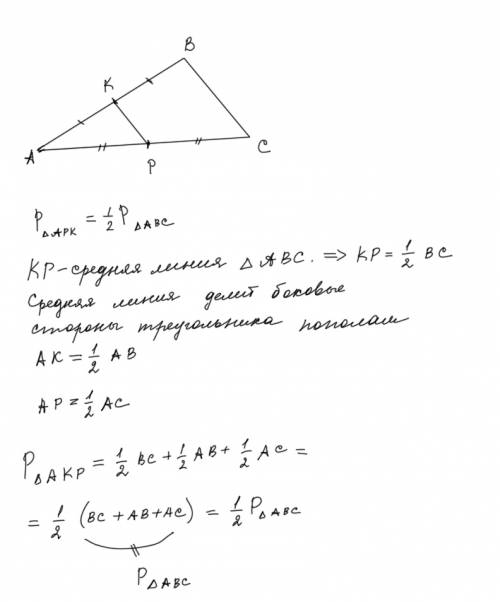 B
K
A
P
C
P△APK = 1/2 P△ABC
KP - средняя линия △ABC. => KP = 1/2 BC
Средняя линия делит боковые
стороны треугольника пополам
AK = 1/2 AB
AP = 1/2 AC
P△AKP = 1/2 BC + 1/2 AB + 1/2 AC =
= 1/2 (BC + AB + AC) = 1/2 P△ABC
P△ABC